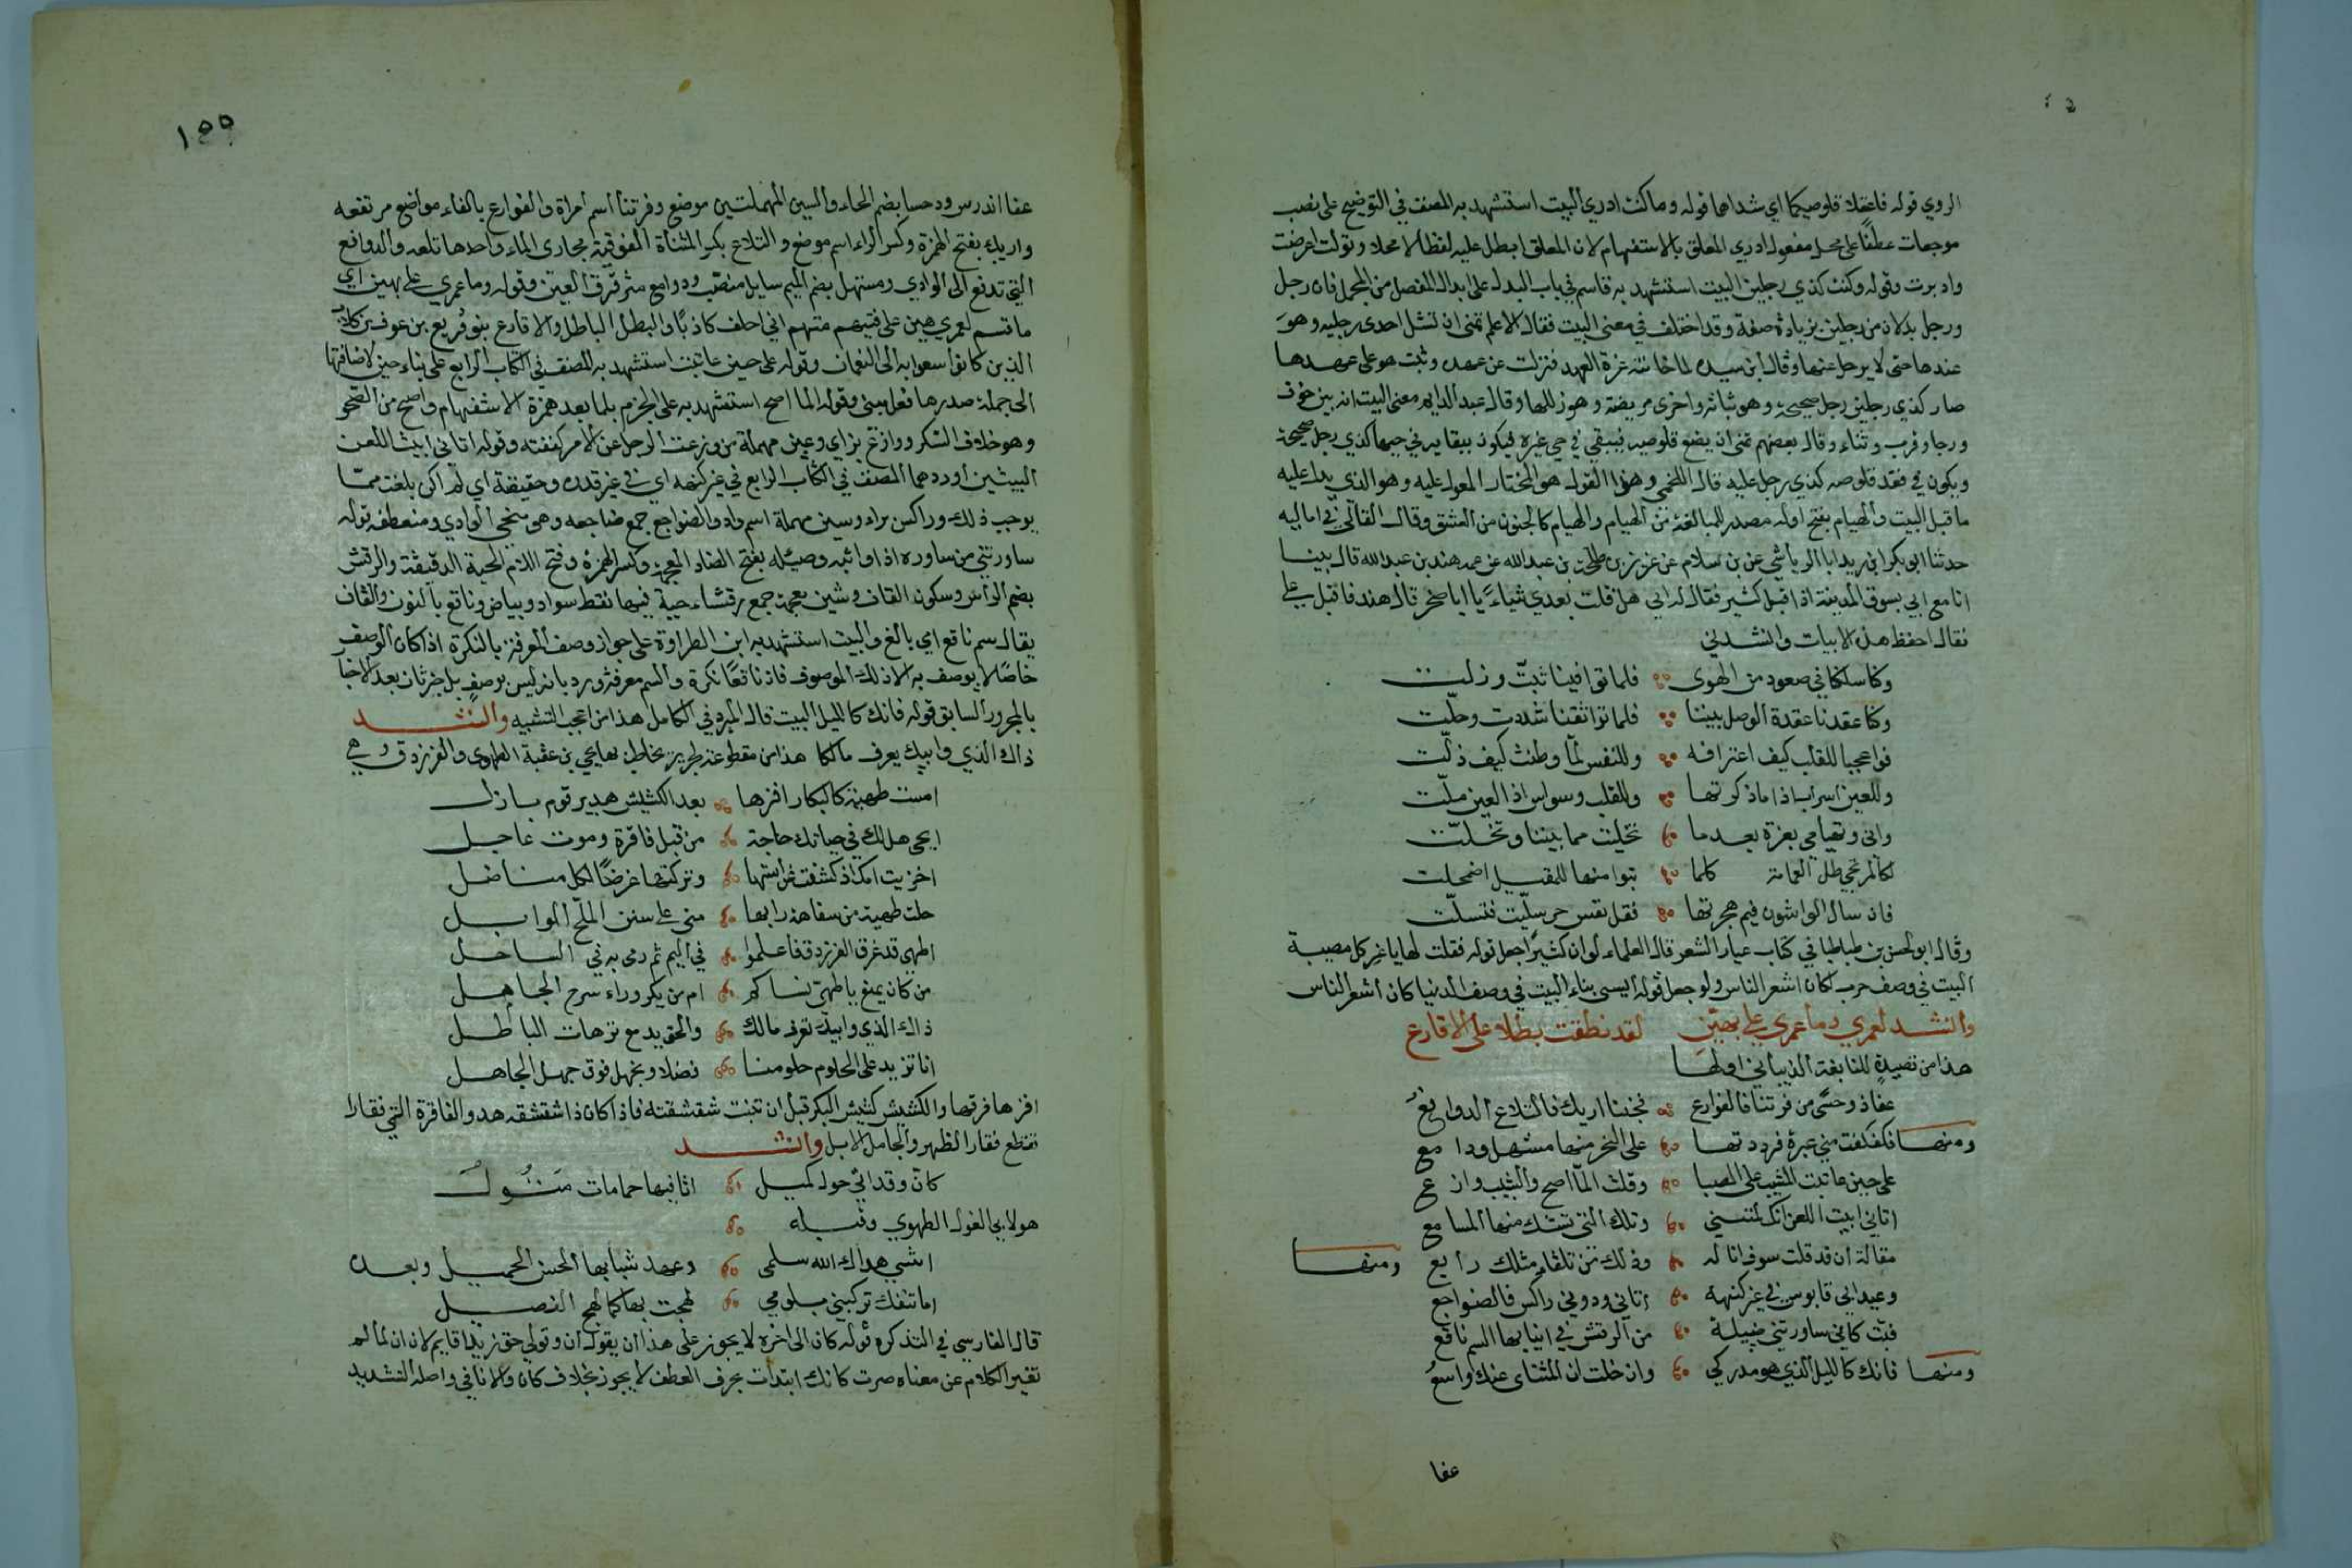 الروي قوله فاعقلا قلوصيكما اي شداهما قوله وما كنت ادري البيت استشهد به المصنف في التوضيح على نصب
موجعات عطفًا على محل مفعول ادري المعلق بالاستفهام لان المعلق ابطل عليه لفظا لا محلا وتولت اعرضت
وادبرت وقوله وكنت كذي رجلين البيت استشهد به قاسم في باب البدل على ابدال المفصل من المجمل فان رجل
ورجل بدلان من رجلين بزيادة صفة وقد اختلف في معنى البيت فقال الاعلم تمنى ان تشل احدى رجليه وهو
عندها حتى لا يرحل عنها وقال ابن سيده لما خانته عزة العهد فنزلت عن عهده وثبت هو على عهدها
صار كذي رجلين رجل صحيحة وهو ثباته واخرى مريضة وهو زللها وقال عبد الدايم معنى البيت انه بين خوف
ورجا وقرب وثناء وقال بعضهم تمنى ان يضع قلوصه فيبقي في حي عزة فيكون ببقايه في حيها كذي رجل صحيحة
ويكون في فقد قلوصه كذي رجل عليه قال اللخمي وهذا القول هو المختار المعول عليه وهو الذي يدل عليه
ما قبل البيت والهيام بفتح اوله مصدر للمبالغة من الهيام والهيام كالجنون من العشق وقال القالي في اماليه
حدثنا ابو بكر بن دريد ابا الرياشي عن بن سلام عن عزيز بن طلحة بن عبد الله عن عمه هند بن عبد الله قال بينا
انا مع ابي بسوق المدينة اذ اقبل كثير فقال له ابي هل قلت بعدي شياء يا ابا صخر قال هند فاقبل علي
فقال احفظ هذه الابيات وانشدني
وكنا سلكنا في صعود من الهوى فلما توافينا ثبتّ وزلت
وكنا عقدنا عقدة الوصل بيننا فلما تواثقنا شددت وحلّت
فواعجبا للقلب كيف اعترافه وللنفس لمّا وطنت كيف ذلّت
وللعين اسراب اذا ما ذكرتها وللقلب وسواس اذا العين ملّت
واني وتهيامي بعزة بعد ما تخليت مما بيننا وتخلّت
لكالمرتجي ظل الغمامة كلما تبوا منها للمقيل اضمحلت
فان سال الواشون فيم هجرتها فقل نفس حر سلّيت فتسلّت
وقال ابو الحسن بن طباطبا في كتاب عيار الشعر قال العلماء لو ان كثيرًا جعل قوله فقلت لها يا عز كل مصيبة
البيت في وصف حرب لكان اشعر الناس ولو جعل قوله اسيي بناء البيت في وصف الدنيا كان اشعر الناس
وانشد لعمري وما عمري علي بهيّن لقد نطقت بطلا على الاقارع
هذا من قصيدةٍ للنابغة الذبياني اولها
عفا ذو حسًى من فرتنا فالفوارع فجنبا اريك فالتلاع الدوافعُ
ومنها فكفكفت مني عبرة فرددتها على النحر منها مستهل ودامع
على حين عاتبت المشيب على الصبا وقلت المّا اصح والشيب وازع
اتاني ابيت اللعن انك لمتني وتلك التي تستك منها المسامع
مقالة ان قد قلت سوف اناله وذلك من تلقاء مثلك رايع ومنها
وعيد ابي قابوس في غير كنهه اتاني ودوني راكس فالضواجع
فبت كاني ساورتني ضييلة من الرقش في انيابها السم ناقع
ومنها فانك كالليل الذي هو مدركي وان خلت ان المنتاى عنك واسعُ
عفا
١٥٥
عفا اندرس وذو حسا بضم الحاء والسين المهملتين موضع وفرتنا اسم امراة والفوارع بالفاء مواضع مرتفعه
واريك بفتح الهمزة وكسر الراء اسم موضع والتلاع بكسر المثناة الفوقية مجاري الماء واحدها تلعه والدوافع
التي تدفع الى الوادي ومستهل بضم الميم سايل منصبّ ودامع مترقرق العين وقوله وما عمري علي بهين اي
ما قسم لعمري هين على فيتهم متهم اني احلف كاذبًا والبطل الباطل والاقارع بنو قريع بن عوف بن كلاب
الذين كانوا سعوا به الى النعمان وقوله على حين عاتبت استشهد به المصنف في الكتاب الرابع على بناء حين لاضافتها
الى جملة صدرها فعل مبني وقوله المّا اصح استشهد به على الجزم بلما بعد همزة الاستفهام واصح من الصحو
وهو خلاف السكر ووازع بزاي وعين مهملة من وزعت الرجل عن الامر كففته وقوله اتاني ابيت اللعن
البيتين اوردهما المصنف في الكتاب الرابع في غير كنهه اي في غير قدره وحقيقة اي لم اكن بلغت ممّا
يوجب ذلك وراكس براء وسين مهملة اسم واد والضواجع جمع ضاجعه وهي منحي الوادي ومنعطفه قوله
ساورتني من ساوره اذا واثبه وضييله بفتح الضاد المعجمة وكسر الهمزة وفتح اللام الحية الدقيقة والرقش
بضم الراء وسكون القاف وشين معجمة جمع رقشاء حية فيها نقط سواد وبياض وناقع بالنون والقاف
يقال سم ناقع اي بالغ والبيت استشهد به ابن الطراوة على جواز وصف المعرفة بالنكرة اذا كان الوصف
خاصًا لا يوصف به الا ذلك الموصوف فان ناقعًا نكرة والسم معرفة ورد بانه ليس بوصفٍ بل خبر ثان بعد الاخبار
بالمجرور السابق قوله فانك كالليل البيت قال المبرد في الكامل هذا من اعجب التشبيه وانشد
ذاك الذي وابيك يعرف مالكا هذا من مقطوعة لجرير يخاطب بها يحيى بن عقبة الطهوي والفرزدق وهي
امست طهية كالبكار افزها بعد الكشيش هدير قوم بازل
ايحيى هل لك في حياتك حاجة من قبل فاقرة وموت عاجل
اخزيت امك اذ كشفت عن استها وتركتها غرضًا لكل مناضل
حلت طهية من سفاهة رايها مني على سنن الملّح الوابل
اطهي قد غرق الفرزدق فاعلموا في اليم ثم رمى به في الساحل
من كان يمنع يا طهيّ نساكم ام من يكر وراء سرح الجاهل
ذاك الذي وابيك تعرف مالك والحق يدمغ ترهات الباطل
انا تزيد على الحلوم حلومنا فضلا ونجهل فوق جهل الجاهل
افزها فرقها والكشيش كشيش البكر قبل ان تنبت شقشقته فاذا كان ذا شقشقه هدر والفاقرة التي فقارا
تقطع فقار الظهر والجامل الابل وانشد
كان وقد اتى حول كميل اثافيها حمامات مثول
هو لابي الغول الطهوي وقبله
اتنسي هداك الله سلمى وعهد شبابها الحسن الجميل وبعده
اما تنفك تركبني بلومي لهجت بها كما لهج الفصيل
قال الفارسي في التذكره قوله كان الى اخره لا يجوز على هذا ان يقول ان وقولي حق زيدا قايم لان ان لما لم
تغير الكلام عن معناه صرت كانك ابتدات بحرف العطف لا يجوز بخلاف كان والاثافي واصله التشديد